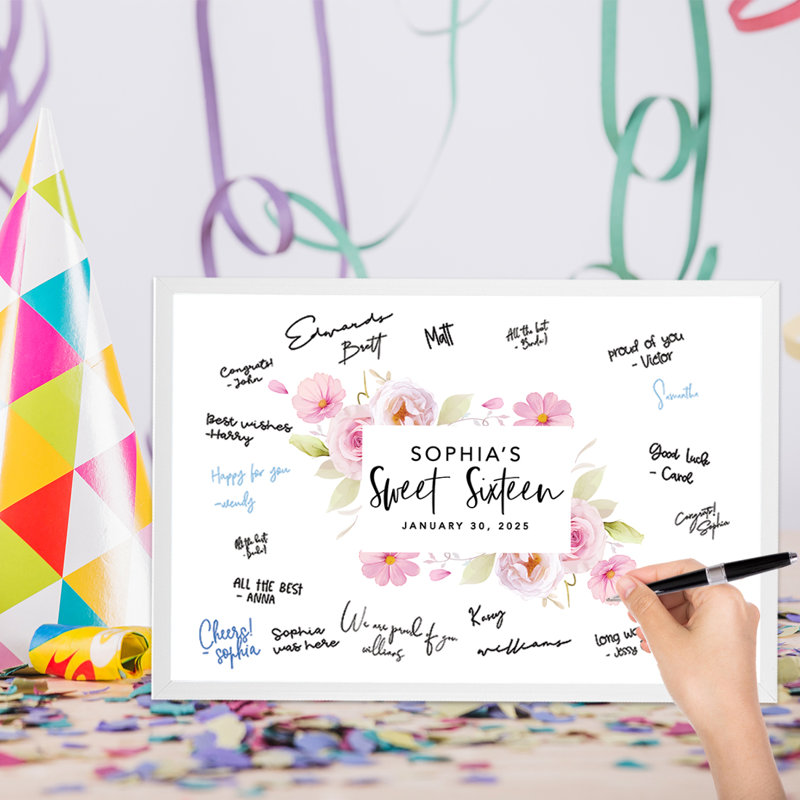 Edwards
Brett
Matt
All the best
proud of you
- Victor
Congrats!
- John
Samantha
Best wishes
-Harry
SOPHIA'S
Sweet Sixteen
JANUARY 30, 2025
Good luck
- Carol
Happy for you
-wendy
Congrats!
Sophia
All the best
ALL THE BEST
- ANNA
Cheers!
- sophia
Sophia
was here
We are proud of you
williams
Kasey
williams
long
- Jessy